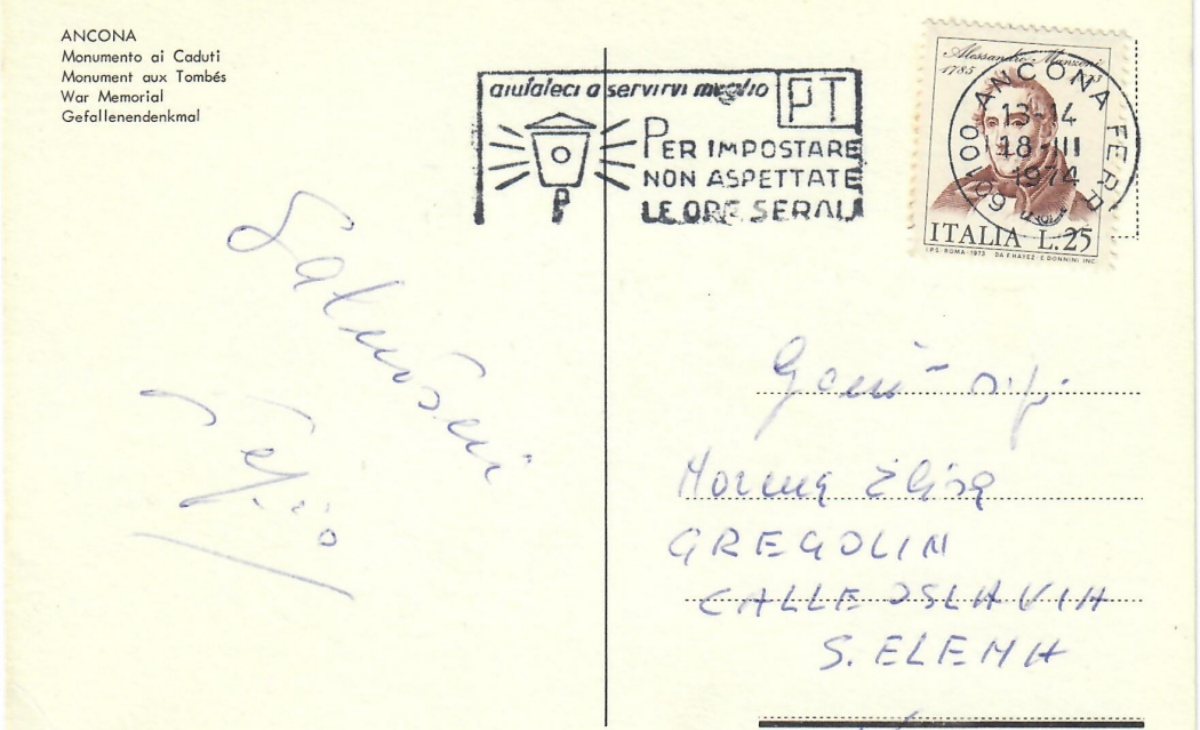 ANCONA
Monumento ai Caduti
Monument aux Tombés
War Memorial
Gefallenendenkmal
aiutateci a servirvi meglio
PT
PER IMPOSTARE
NON ASPETTATE
LE ORE SERALI
Alessandro Manzoni
1785
60100 ANCONA FERR
13-14
18-III
1974
ITALIA L.25
I.P.S. ROMA-1973 DA F. HAYEZ-E. DONNINI INC.
Saluoni
Gent
Morena Elisa
GREGOLIN
CALLE OSLAVIA
S. ELENA